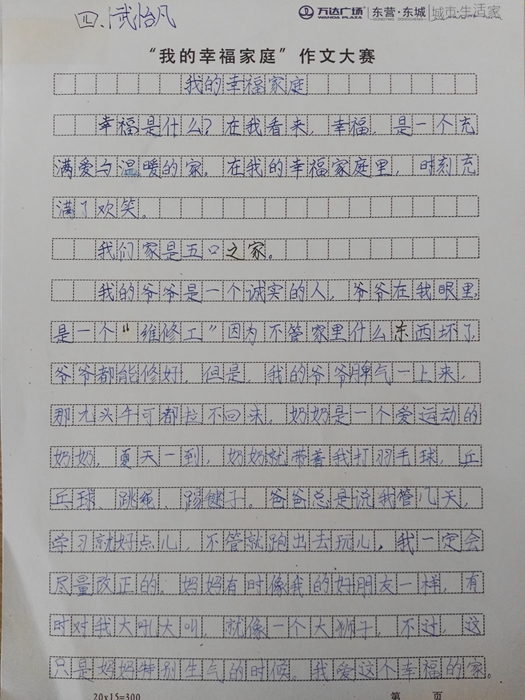 四、武怡凡
万达广场 WANDA PLAZA 东营·东城 城市·生活家
“我的幸福家庭”作文大赛
我的幸福家庭
幸福是什么？在我看来，幸福，是一个充
满爱与温暖的家。在我的幸福家庭里，时刻充
满了欢笑。
我们家是五口之家。
我的爷爷是一个诚实的人，爷爷在我眼里，
是一个“维修工”因为不管家里什么东西坏了，
爷爷都能修好，但是，我的爷爷脾气一上来，
那九头牛可都拉不回来，奶奶是一个爱运动的
奶奶，夏天一到，奶奶就带着我打羽毛球，乒
乓球、跳绳、踢毽子。爸爸总是说我管几天，
学习就好点儿，不管就跑出去玩儿，我一定会
尽量改正的。妈妈有时像我的好朋友一样，有
时对我大吼大叫，就像一个大狮子，不过，这
只是妈妈特别生气的时候。我爱这个幸福的家。
20x15=300 第 页